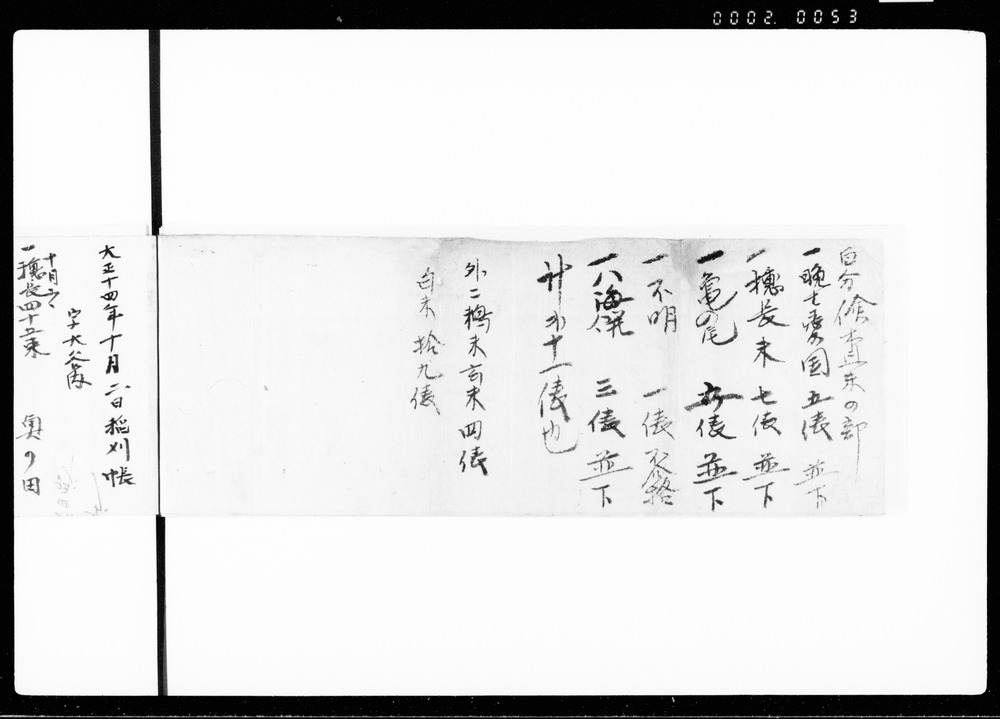 0002. 0053
自分倹査米の部
一晩七愛国 五俵 並下
一穂長米 七俵 並下
一亀の尾 六俵 並下
一不明 一俵 不合格
一八海 三俵 並下
計弐十一俵也
外ニ 米 四俵
白米 拾九俵
大正十四年十月六日稲刈帳
字大谷
十月六日
一穂長四十五束 奥の田